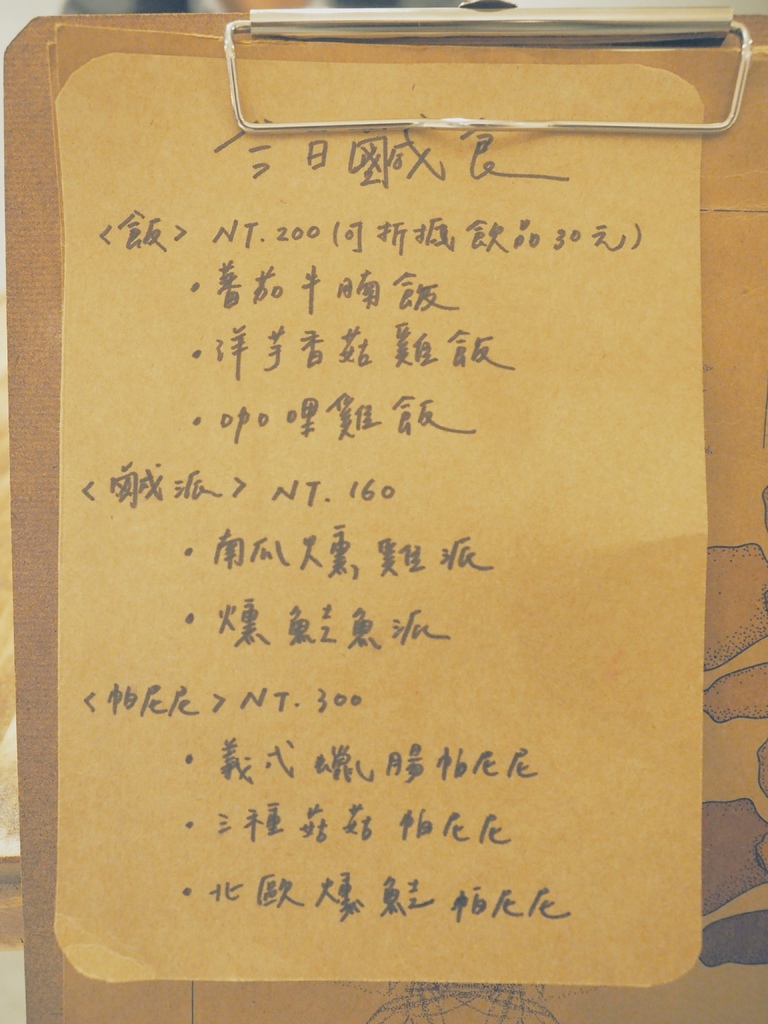 今日鹹食
<飯> NT.200(可折抵飲品30元)
・蕃茄牛腩飯
・洋芋香菇雞飯
・咖哩雞飯
<鹹派> NT.160
・南瓜燻雞派
・燻鮭魚派
<帕尼尼> NT.300
・義式蠟腸帕尼尼
・三種菇菇帕尼尼
・北歐燻鮭帕尼尼